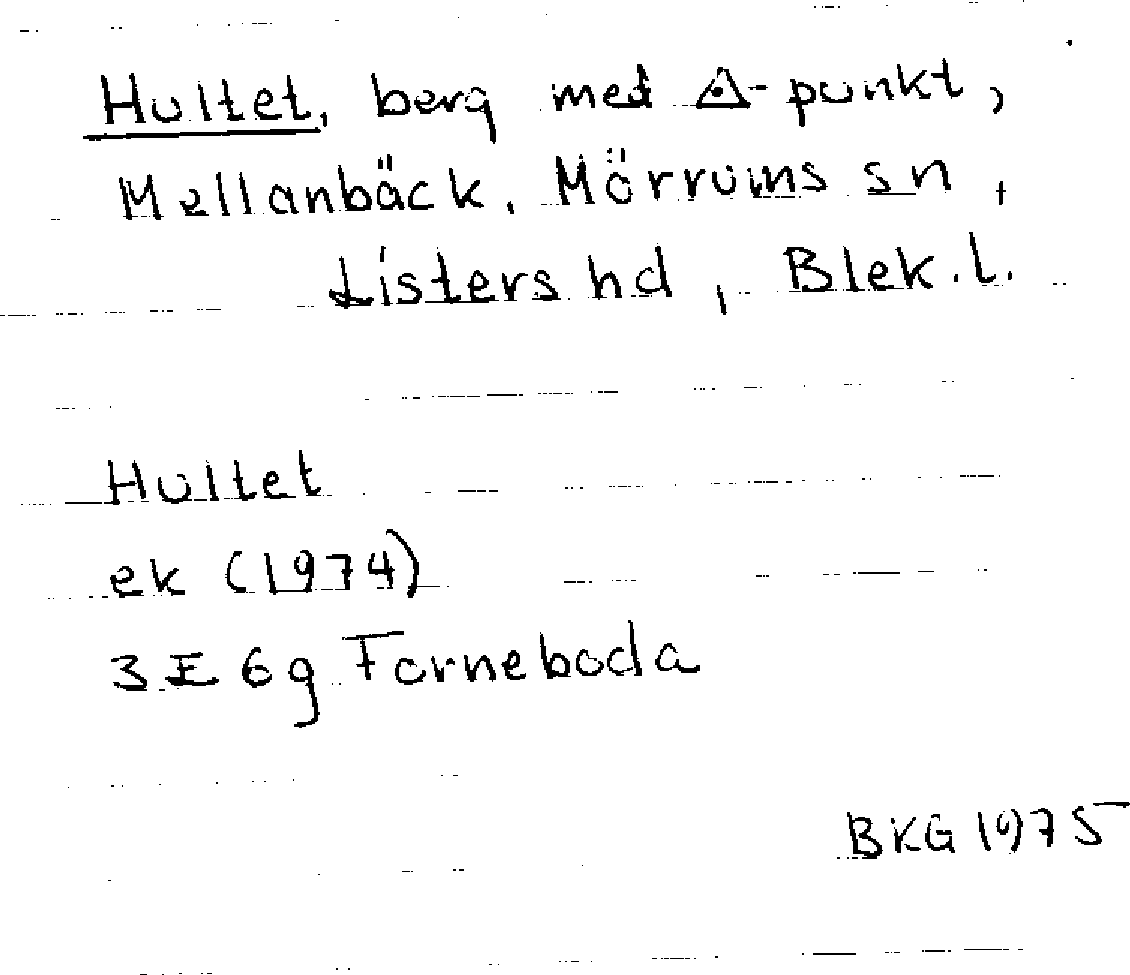 Hultet, berg med △-punkt,
Mellanbäck, Mörrums sn,
Listers hd, Blek. l.
Hultet
ek (1974)
3E 6g Forneboda
BKG 1975